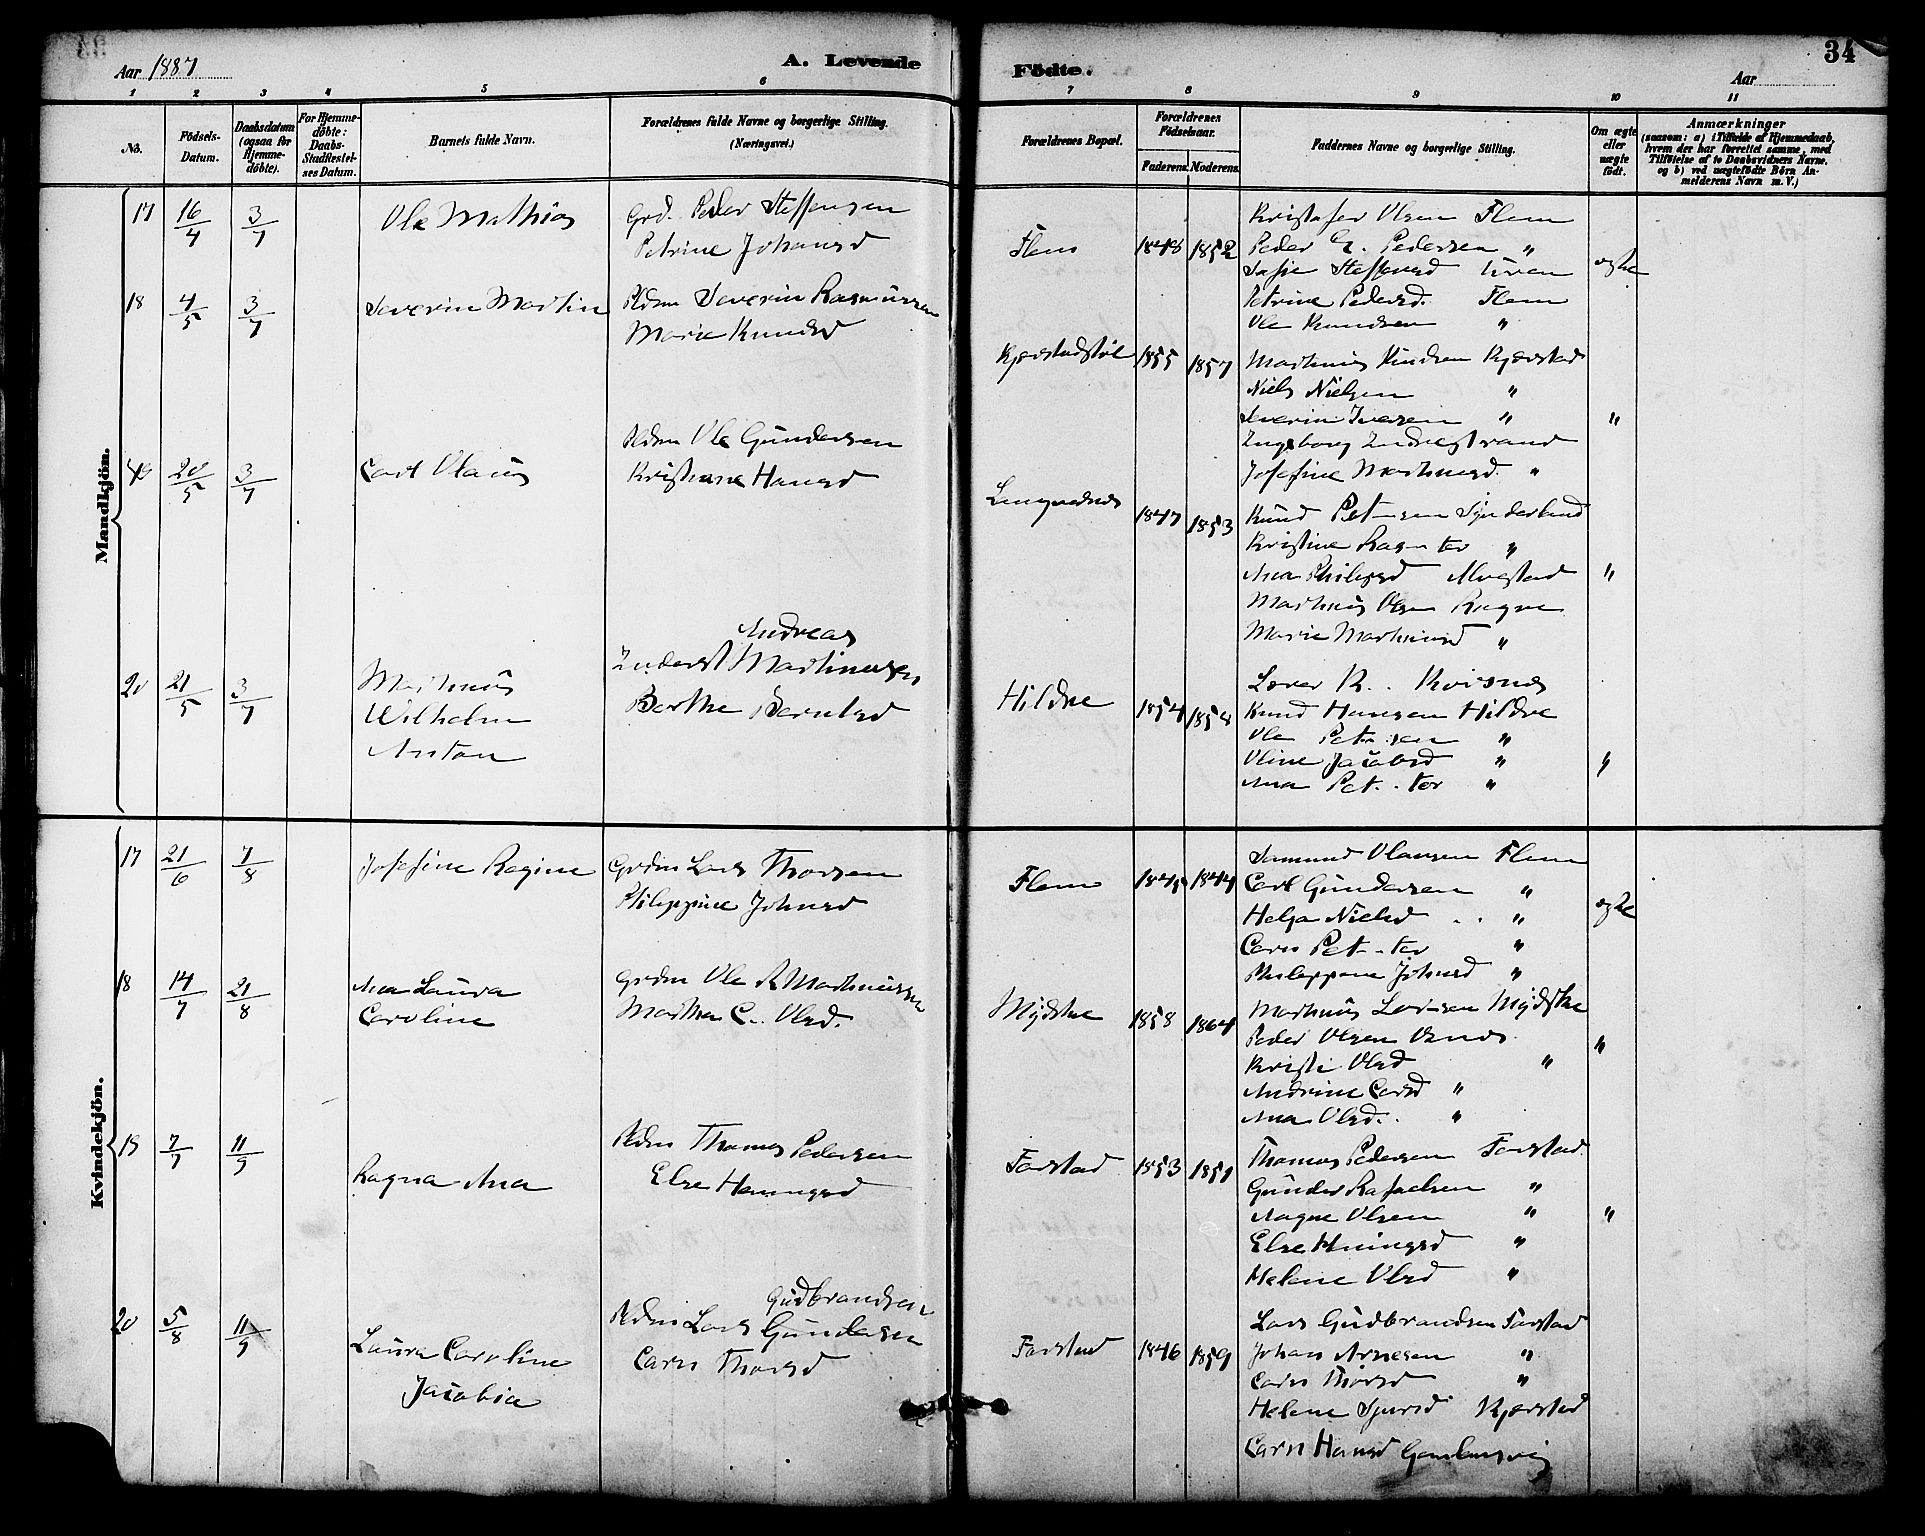 Aar 1887
A. Levende Födte.
34
Aar
1 2 3 4 5 6 7 8 9 10 11
No.
Födsels-Datum.
Daabsdatum (ogsaa for Hjemme-döbte).
For Hjemme-döbte: Daabs-Stadfæstel-ses Datum.
Barnets fulde Navn.
Forældrenes fulde Navne og borgerlige Stilling. (Næringsvei.)
Forældrenes Bopæl.
Forældrenes Födselsaar.
Faderens. Moderens.
Faddernes Navne og borgerlige Stilling.
Om ægte eller uægte födt.
Anmærkninger
(saasom: a) i Tilfælde af Hjemmedaab, hvem der har forrettet samme, med Tilföielse af to Daabsvidners Navne. og b) ved uægtefödte Börn An-melderens Navn m. V.)
Mandkjön.
17 16/4 3/7 Ole Mathias
Grd. Peder Steffensen
Petrine Johansd
Flem 1848 1852
Kristofer Olsen Flem
Peder E. Pedersen "
Steffensd
Petrine Pedersd. Flem
Ole Knudsen "
ægte
18 4/5 3/7 Severin Martin
Pldsm Severin Rasmussen
Marie Knudsd
Kjærstadstøl 1855 1857
Marthinus Knudsen Kjærstad
Niels Nielsen "
Severin Iversen "
Ingeborg Indrestrand
Josefine Marthinusd. "
"
19 20/5 3/7 Carl Olaus
Pldsm Ole Gundersen
Kristiane Hansd
1847 1853
Knud Petersen Synderland
Kristine Rasm ter "
Ana Philipsd Alvestad
Marthinus Olsen Rogne
Marie Marthinusd "
"
20 21/5 3/7 Marthinus
Wilhelm
Anton
Andreas
Inderst Martinusen
Berthe Berntsd
Hildre 1854 1858
Lærer K. Kvisnes
Knud Hansen Hildre
Ole Petersen "
Oline Jacobsd "
Ana Pet. ter "
"
Kvindekjön.
17 21/6 7/8 Josefine Regine
Grdm Lars Thorsen
Philippine Johnsd
Flem 1845 1844
Samund Olausen Flem
Carl Gundersen "
Helga Nielsd "
Caren Pet. ter "
Philippine Johnsd "
ægte
18 14/7 21/8 Ana Laura
Caroline
Grdm Ole R Marthinussen
Marthe C. Olsd.
Mydske 1858 1864
Marthinus Larsen Mydske
Peder Olsen
Kristi Olsd "
Andrine Carsd "
Ana Olsd. "
"
19 7/7 11/9 Ragna Ana
Pldsm Thomas Pedersen
Else Hemingsd
Farstad 1853 1851
Thomas Pedersen Farstad.
Gunder Rafaelsen "
Magne Olsen "
Else Hemingsd "
Helene Olsd "
"
20 5/8 11/9 Laura Caroline
Jacobia
Gudbrandsen
Pldsm Lars Gundersen
Caren Thorsd
Farstad 1846 1859
Lars Gudbrandsen Farstad
Johan Arnesen "
Caren Thorsd "
Helene Sjursd Kjærstad
Caren Hansd Gamlemsvig